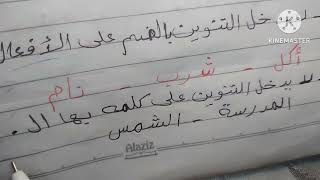 لا يدخل التنوين بالضم على الأفعال
أكل - شرب - نام
لا يدخل التنوين على كلمه بها ال.
المدرسة - الشمس
Alaziz
KINEMASTER